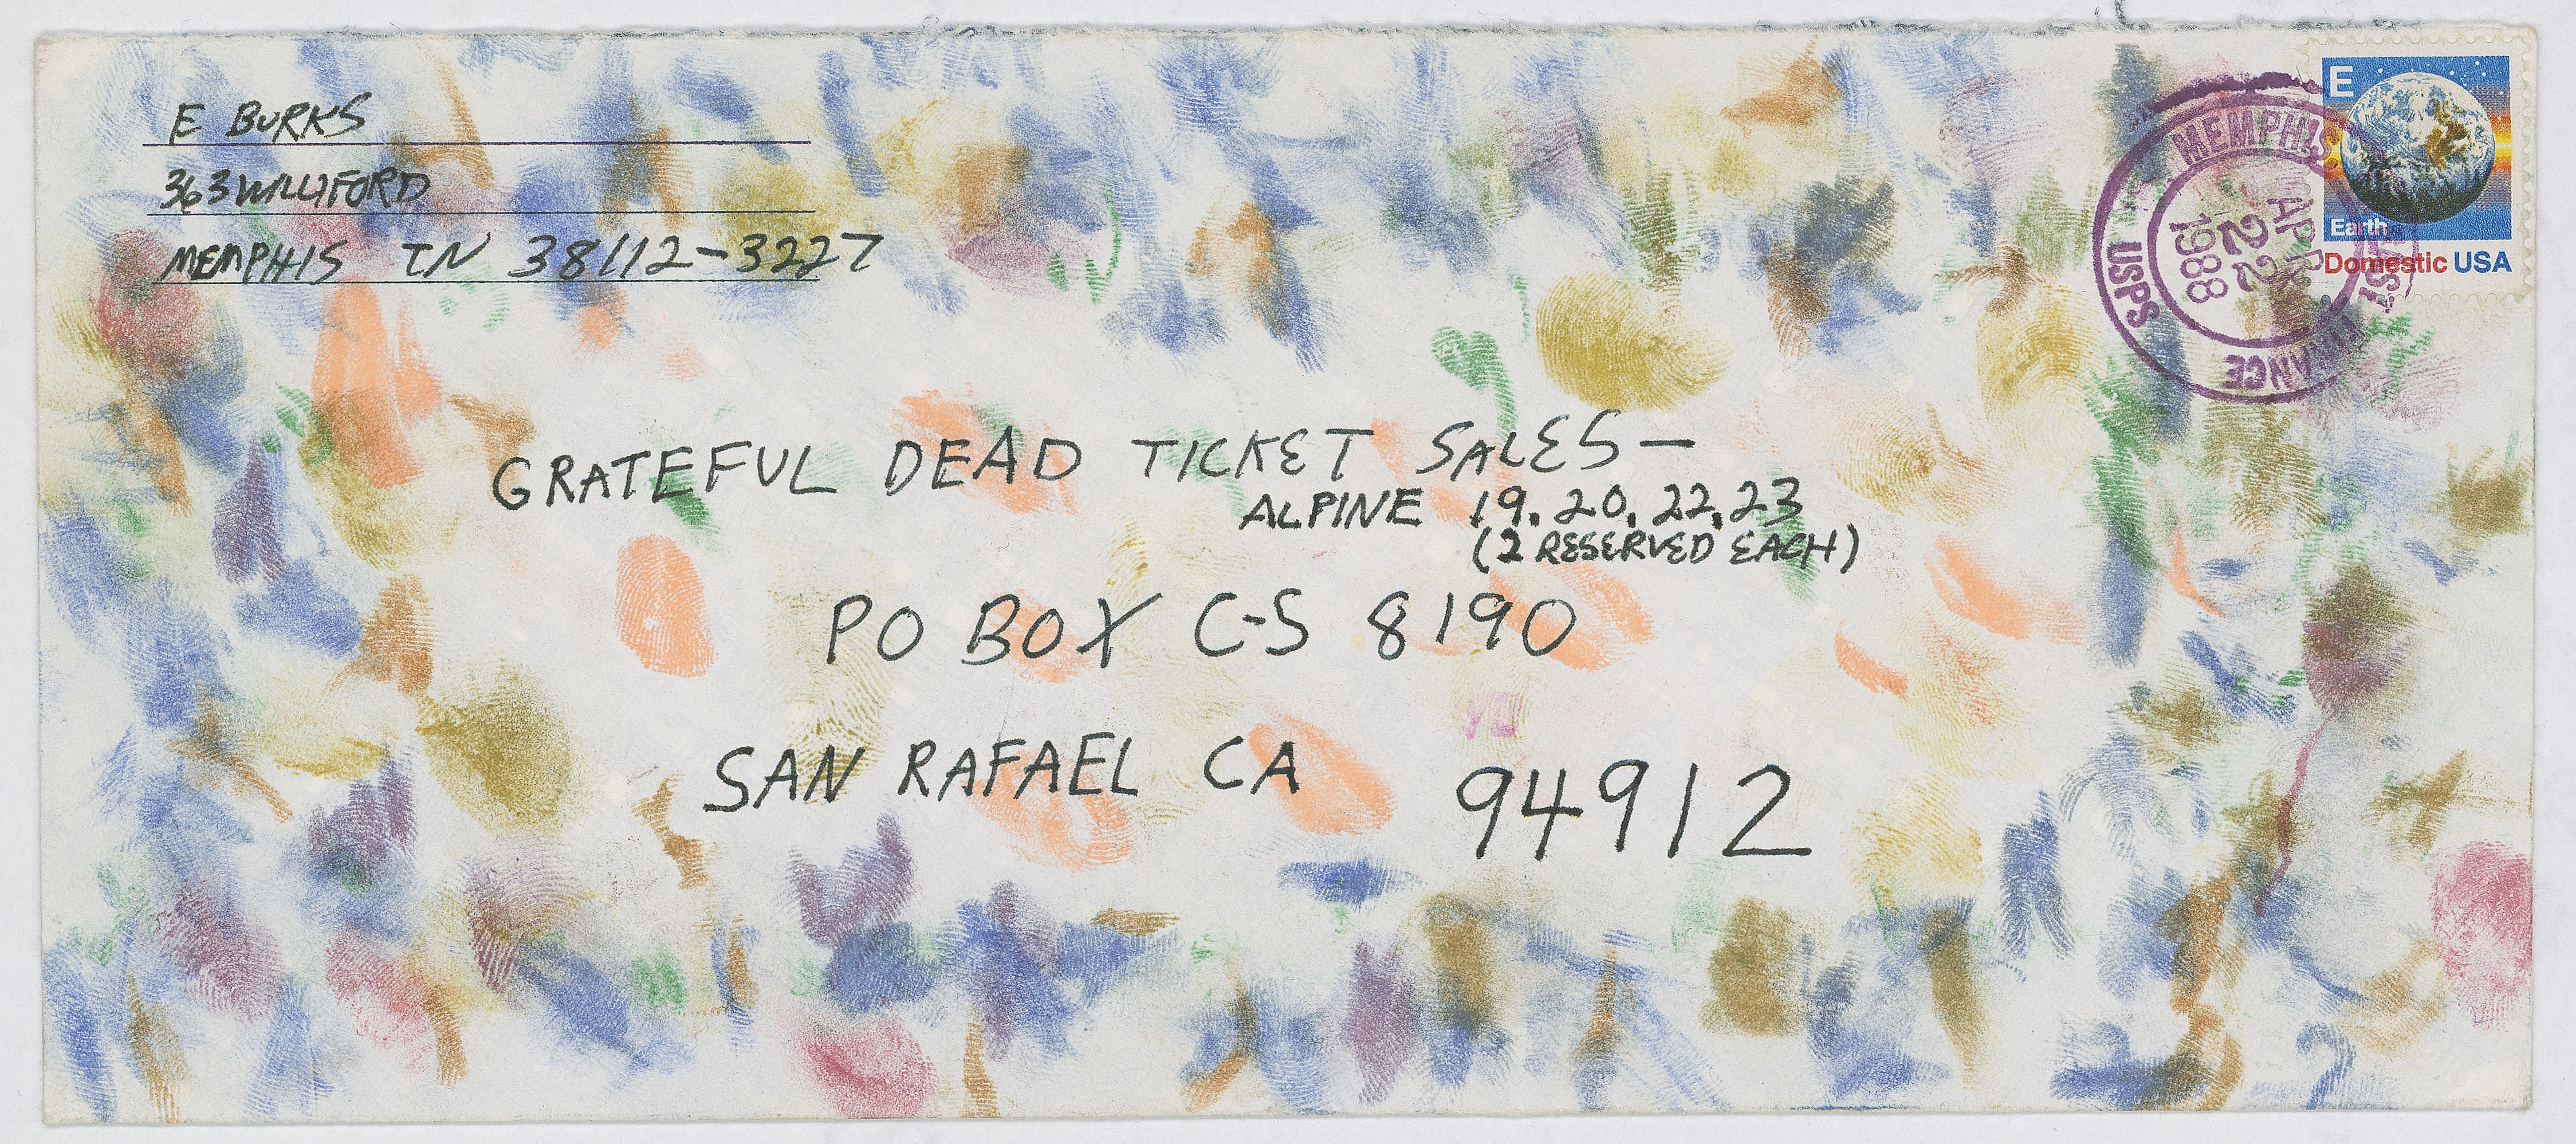 E BURKS
363 WILLIFORD
MEMPHIS TN 38112-3227
E
Earth
Domestic USA
MEMPHIS
APR
22
1988
USPS
GRATEFUL DEAD TICKET SALES—
ALPINE 19, 20, 22, 23
(2 RESERVED EACH)
PO BOX C-S 8190
SAN RAFAEL CA 94912